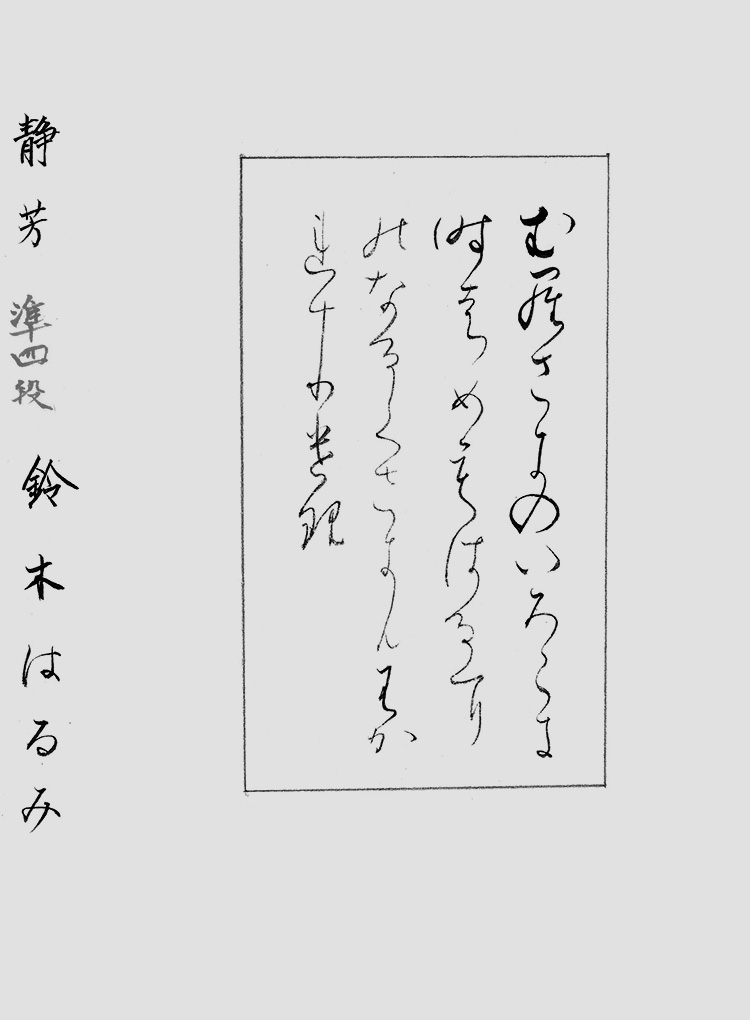 むらさきのいろこき
時はめもはるに
のなるくさきそわか
れさりける
静芳 準四段 鈴木はるみ